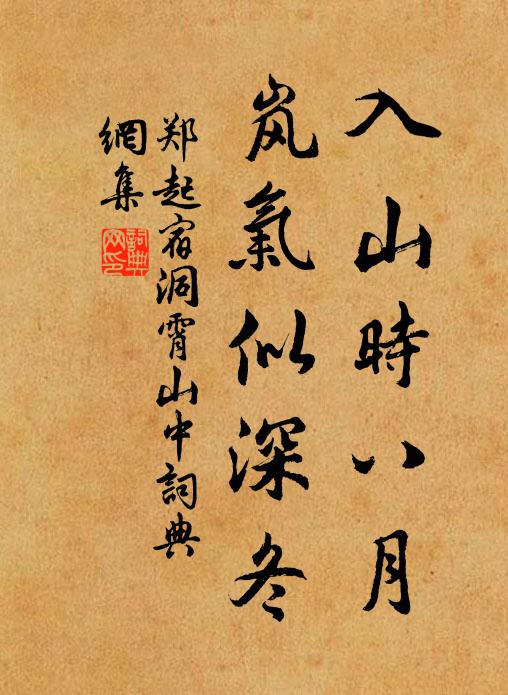 入山時八月
岚氣似深冬
郑起宿洞霄山中詞典
網集
詞典
网印